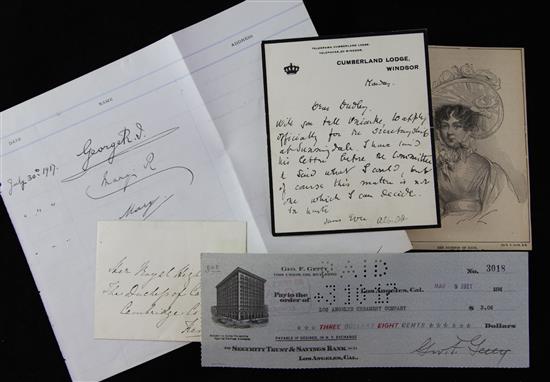 DATE
NAME
ADDRESS
July 30th 1917.
George R.I.
Mary R
Mary
TELEGRAMS, CUMBERLAND LODGE.
CUMBERLAND LODGE,
WINDSOR.
Monday.
Dear Dudley.
Will you tell to apply
officially for the Secretaryship
at Sunningdale. I have
his letter before the Committee
& said what I could, but
of course this matter is not
one which I can decide.
In haste
Yours Ever
Her Royal High
The Duchess of Co
Cambridge Co
Geo. F. Getty
PAID
Los Angeles, Cal.
No. 3018
Pay to the
order of
LOS ANGELES CREAMERY COMPANY
$ 3.08
THREE DOLLARS EIGHT CENTS
Dollars
PAYABLE IF DESIRED, IN N.Y. EXCHANGE
Security Trust & Savings Bank
Los Angeles, Cal.
Geo. F. Getty